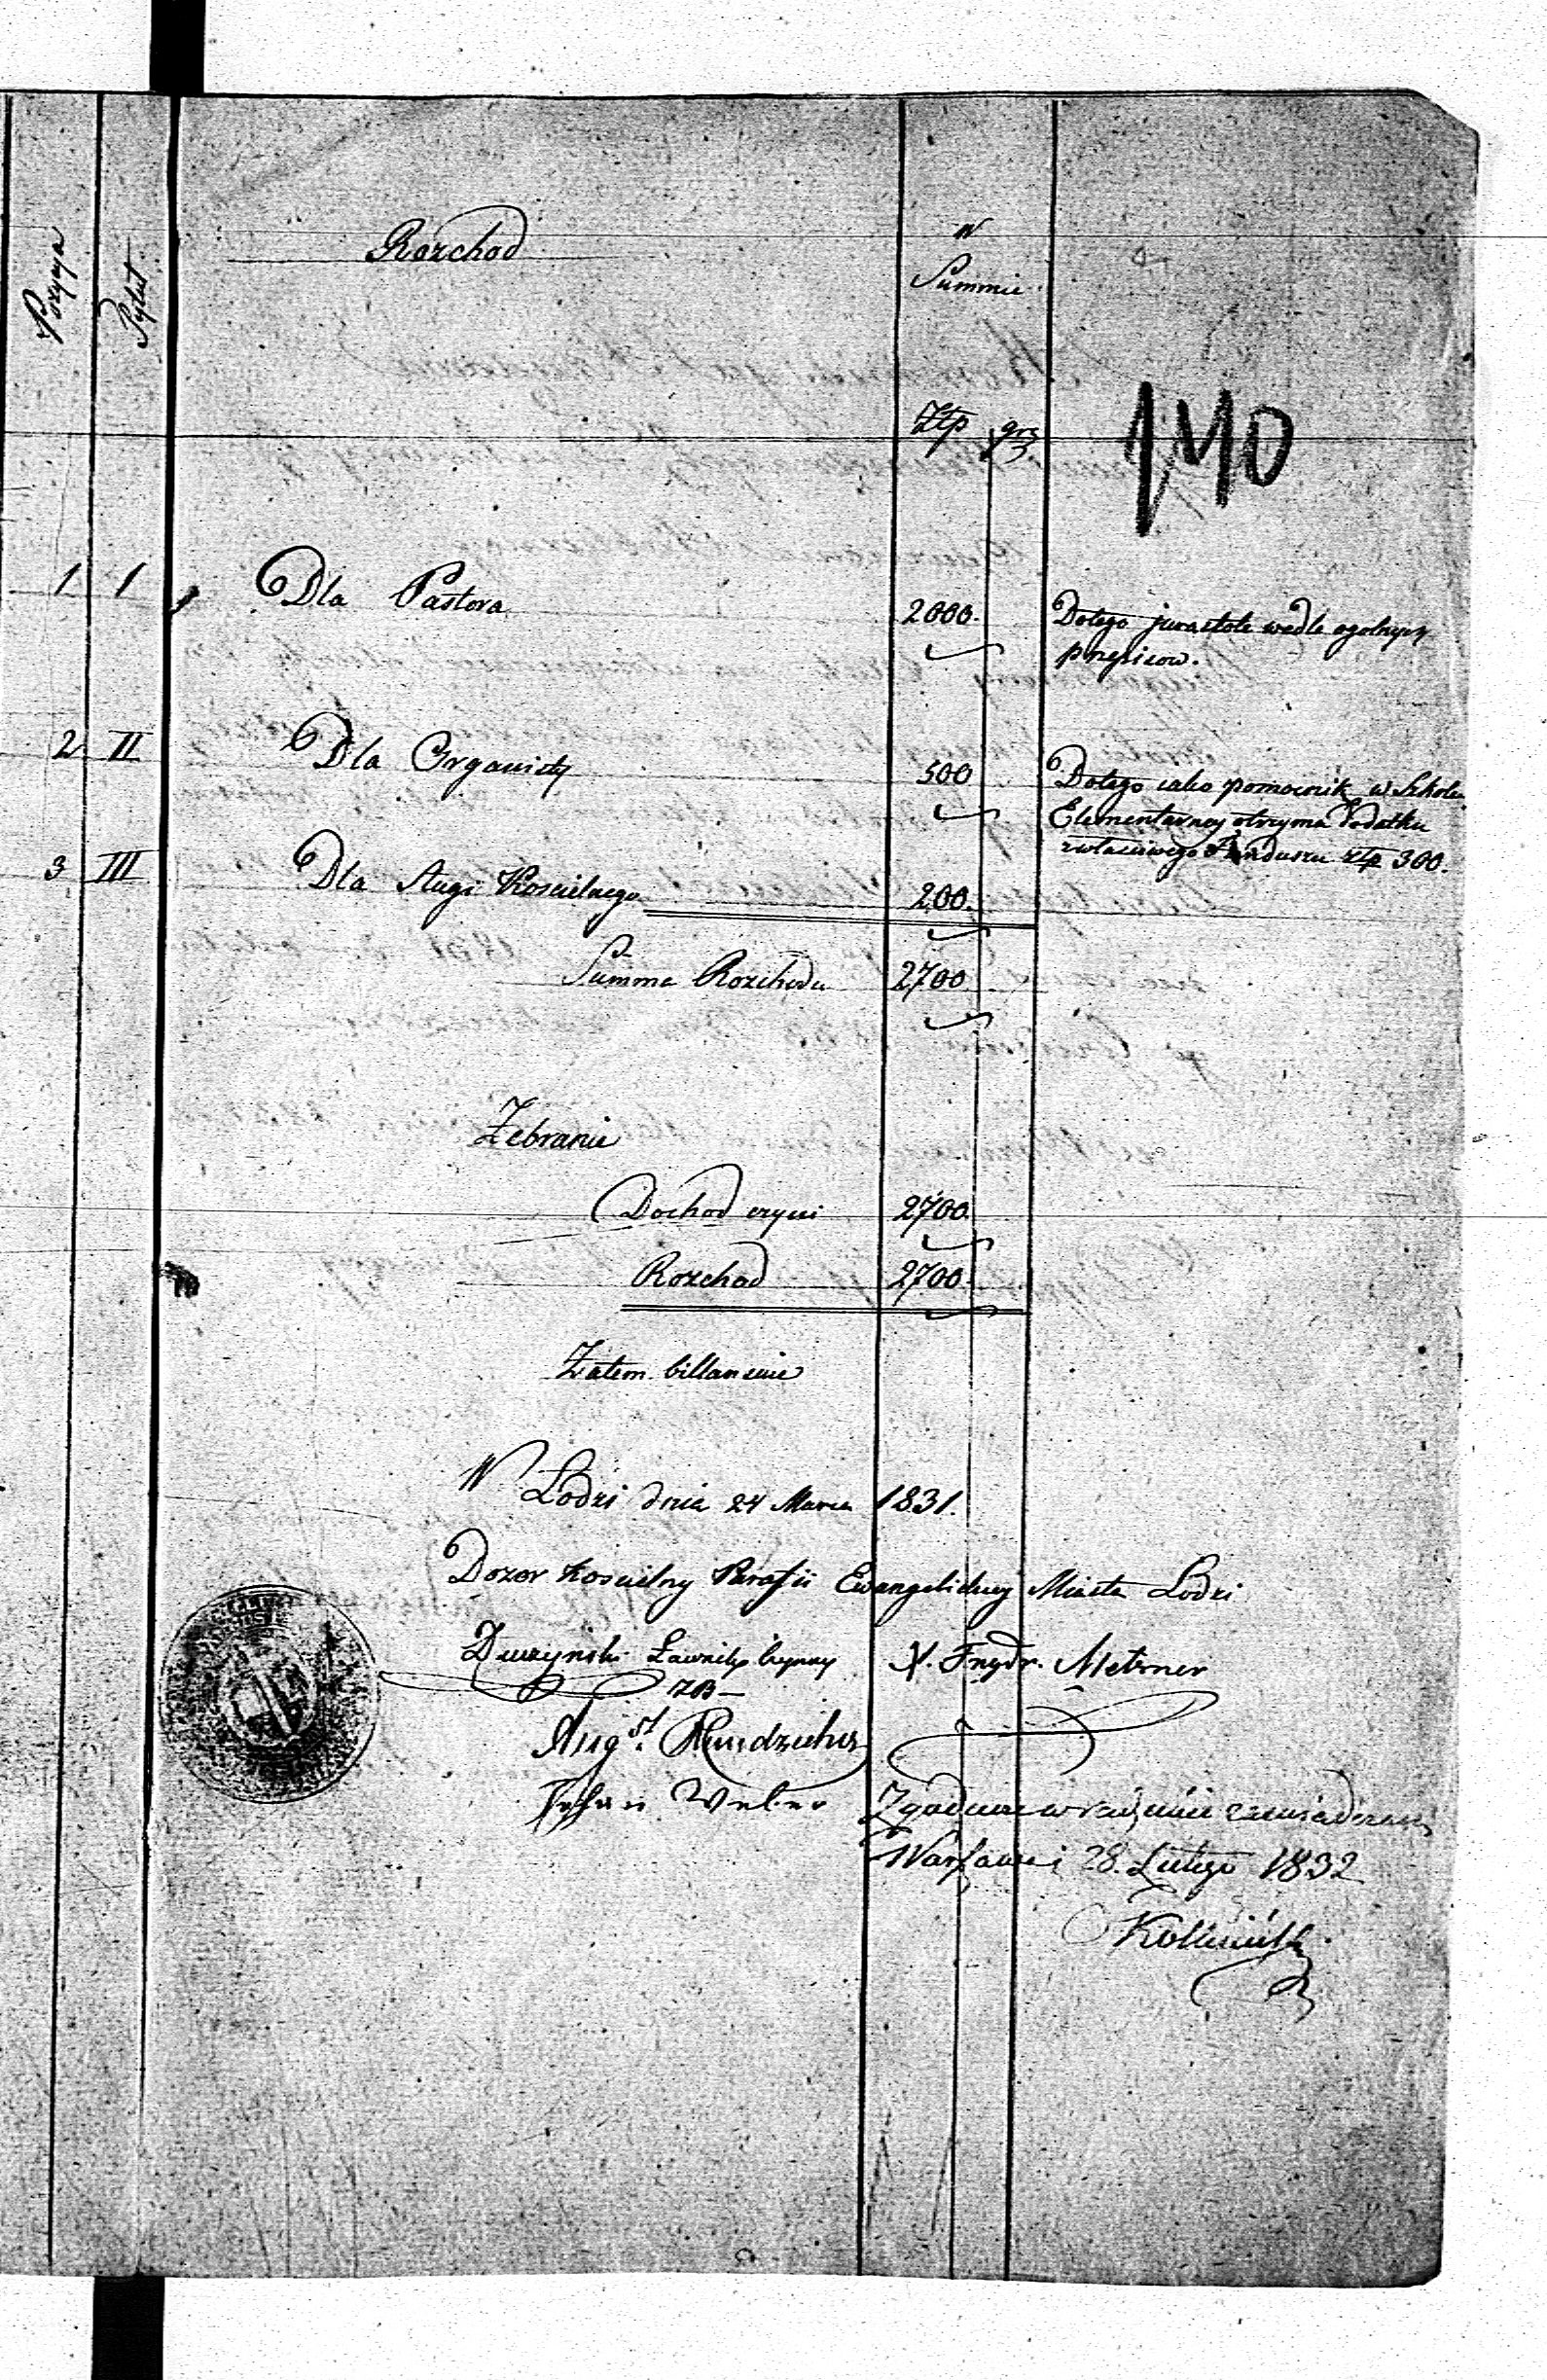 Pozycya
Tytuł
Rozchod
w
Summie
Ztp grz
140
1 I Dla Pastora 2000. Dotego jura stole wedle ogolnych
przepisow.
2 II Dla Organisty 500 Dotego iako pomocnik w Szkole
Elementarney otrzyma dodatku
zwłasciwego Funduszu ztp 300.
3 III Dla sługi Koscielnego 200.
Summa Rozchodu 2700
Zebranie
Dochod czyni 2700.
Rozchod 2700.
Zatem billansuie
W Lodzi dnia 24 Marca 1831.
Dozor Koscielny Parafii Ewangelickiey Miasta Lodzi
Ławnik X. Frydr. Metzner
ZB
Aug st.
Johan Weber Zgodnie
Warszawie 28. Lutego 1832